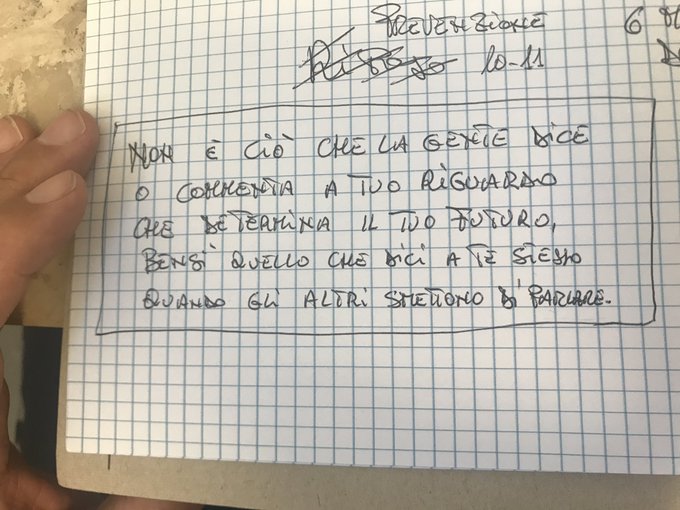 PREVENZIONE 6
10-11
NON È CIÒ CHE LA GENTE DICE
O COMMENTA A TUO RIGUARDO
CHE DETERMINA IL TUO FUTURO,
BENSÌ QUELLO CHE DICI A TE STESSO
QUANDO GLI ALTRI SMETTONO DI PARLARE.